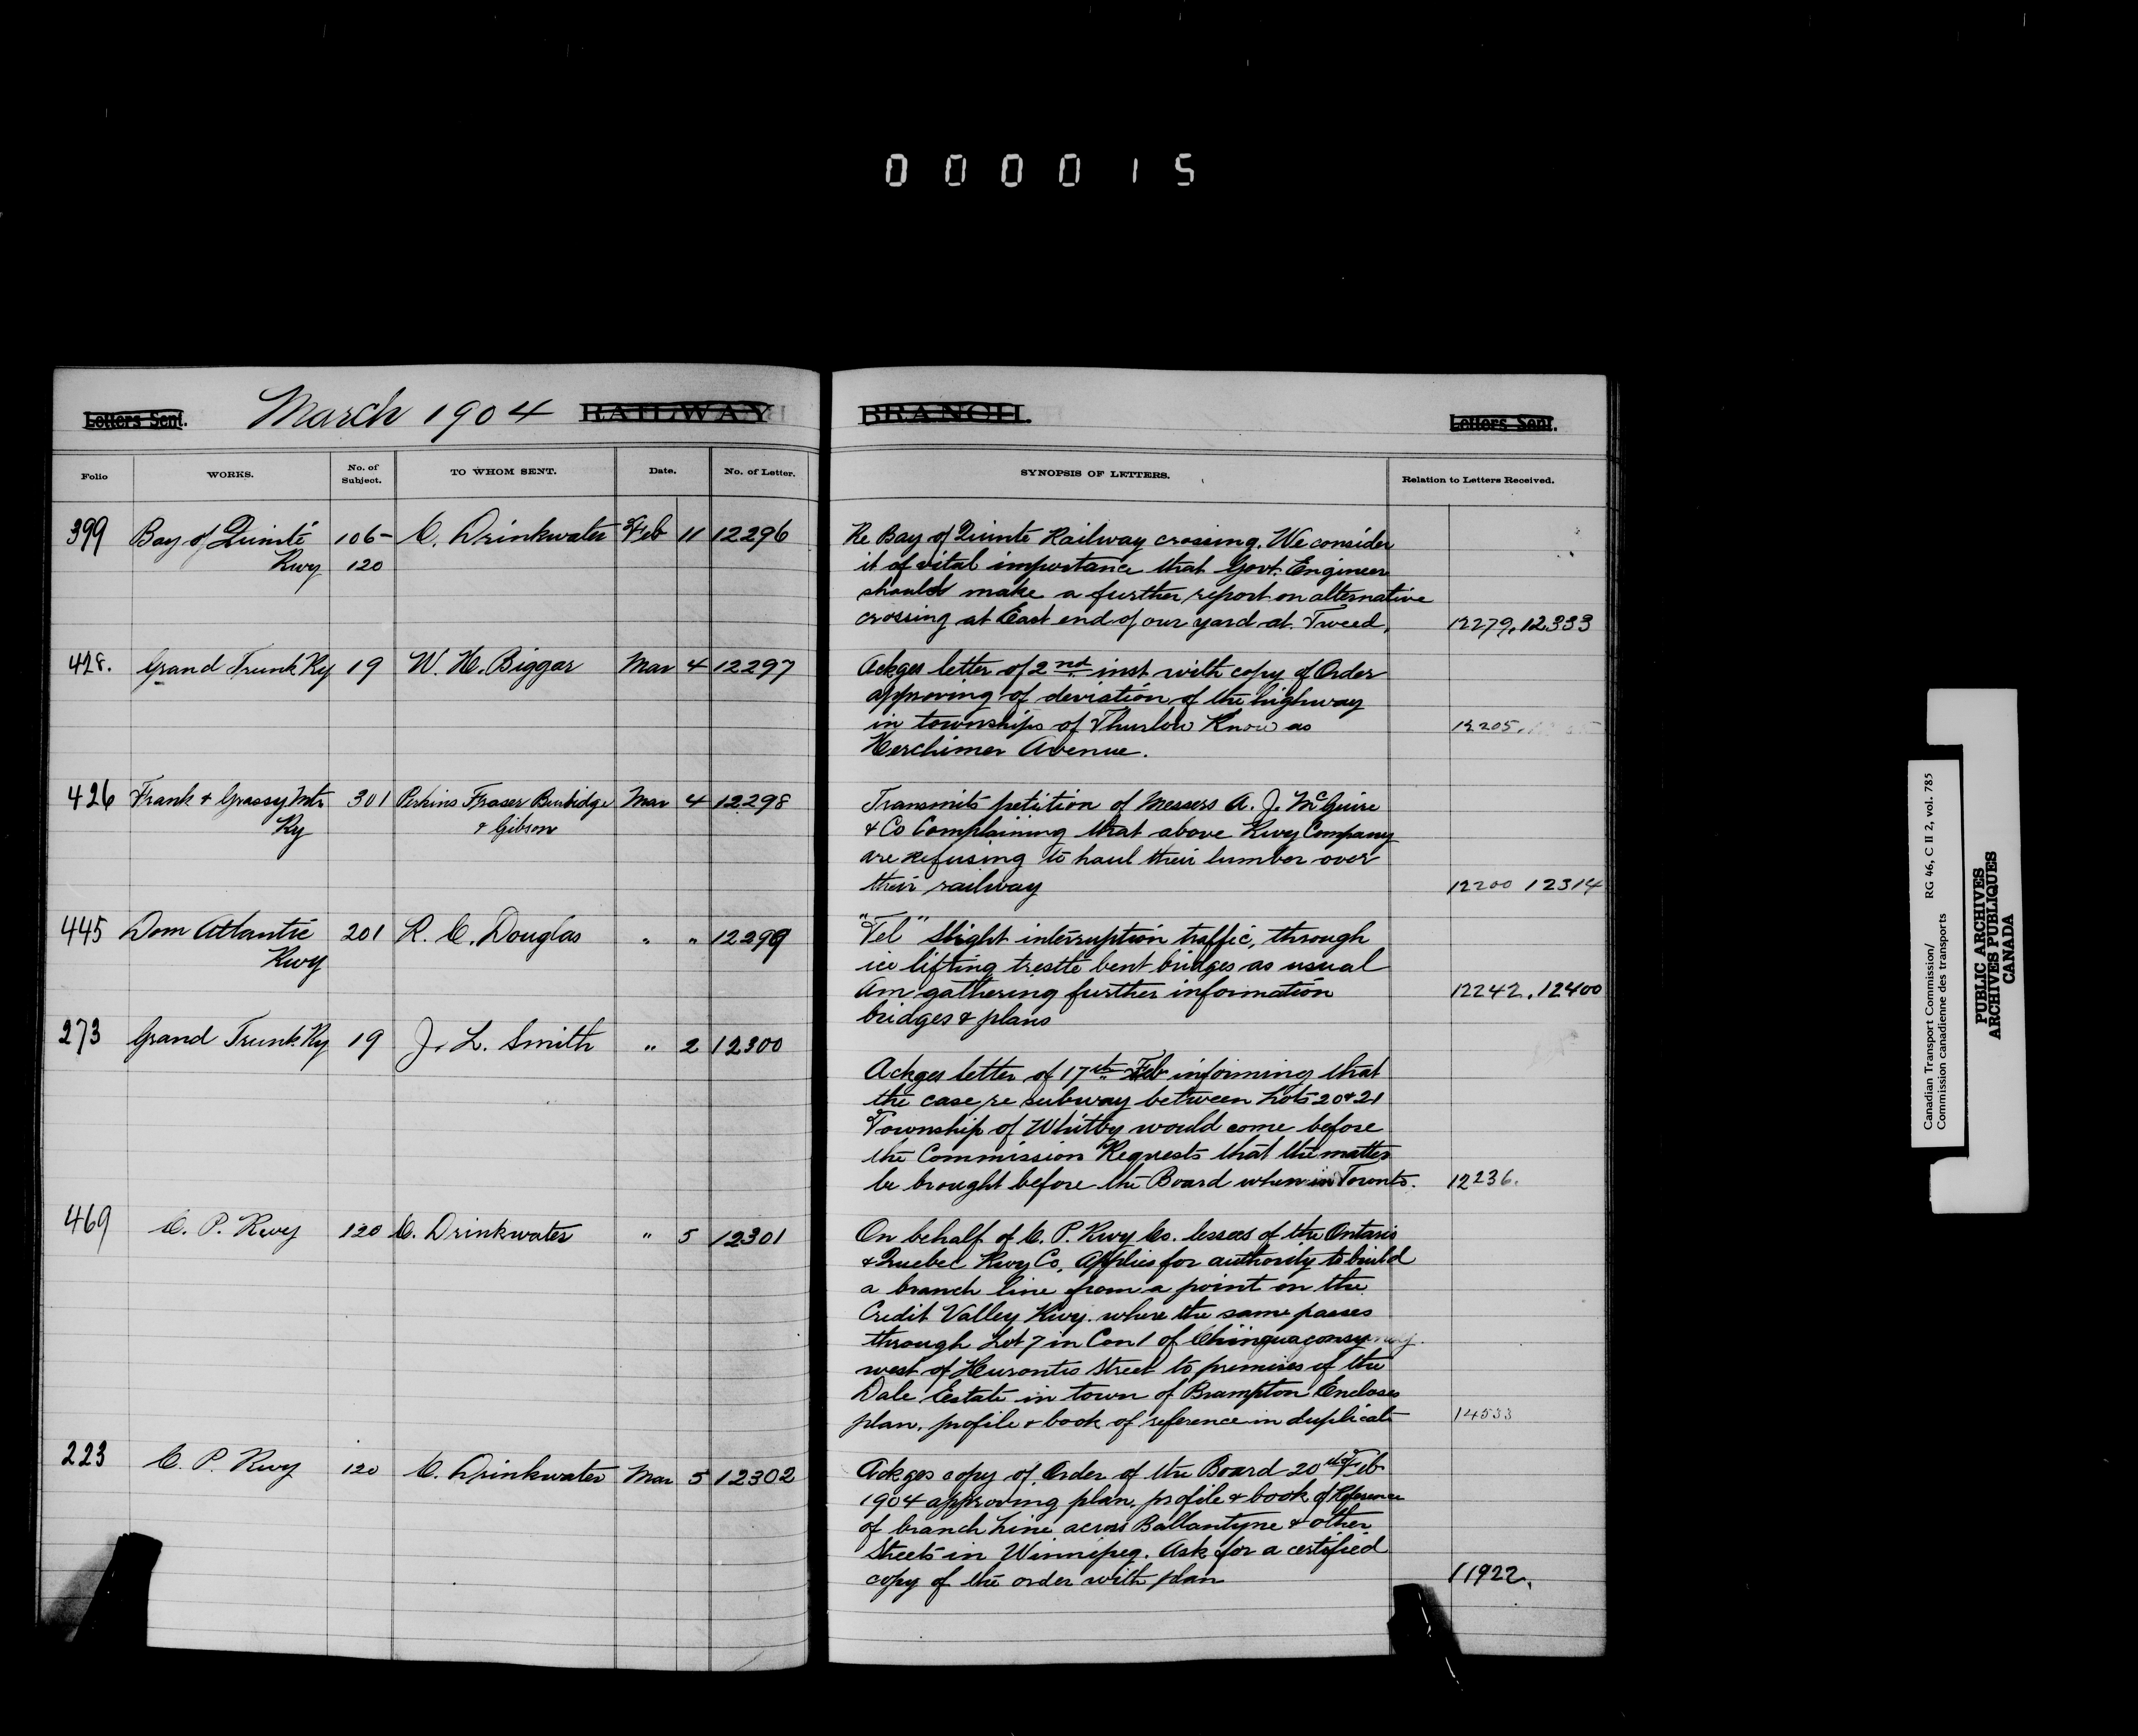 000015
Letters Sent. March 1904 RAILWAY BRANCH. Letters Sent.
Folio WORKS. No. of Subject. TO WHOM SENT. Date. No. of Letter. SYNOPSIS OF LETTERS. Relation to Letters Received.
399 Bay of Quinté 106- C. Drinkwater Feb 11 12296 Re Bay of Quinte Railway crossing. We consider
Rwy 120 it of vital importance that Govt. Engineer
should make a further report on alternative
crossing at East end of our yard at Tweed. 12279, 12333
428. Grand Trunk Ry 19 W. H. Biggar Mar 4 12297 Ackges letter of 2nd inst with copy of Order
approving of deviation of the highway
in townships of Thurlow Know as 12205.
Herchimer Avenue.
426 Frank & Grassy Mtn 301 Perkins Fraser Burbidge Mar 4 12298 Transmits petition of Messers A. J. McGuire
Ry & Gibson & Co Complaining that above Rwy Company
are refusing to haul their lumber over
their railway 12200 12314
445 Dom Atlantic 201 R. C. Douglas " " 12299 "Tel" Slight interruption traffic, through
Rwy ice lifting trestle bent bridges as usual
Am gathering further information 12242. 12400
bridges & plans
273 Grand Trunk Ry 19 J. L. Smith " 2 12300
Ackges letter of 17th Feb informing that
the case re subway between Lots 20 & 21
Township of Whitby would come before
the Commission Requests that the matter
be brought before the Board when in Toronto. 12236.
469 C. P. Rwy 120 C. Drinkwater " 5 12301 On behalf of C. P. Rwy Co. lessees of the Ontario
& Quebec Rwy Co, Applies for authority to build
a branch line from a point on the
Credit Valley Rwy. where the same passes
through Lot 7 in Con 1 of
west of Hurontio Street to premises of the
Dale Estate in town of Brampton Encloses
plan, profile & book of reference in duplicate 14533
223 C. P. Rwy 120 C. Drinkwater Mar 5 12302 Ackges copy of Order of the Board 20th of Feb
1904 approving plan, profile & book of Reference
of branch Line across Ballantyne & other
Streets in Winnipeg. Ask for a certified
copy of the order with plan 11922.
Canadian Transport Commission/ RG 46, C II 2, vol. 785
Commission canadienne des transports
PUBLIC ARCHIVES
ARCHIVES PUBLIQUES
CANADA